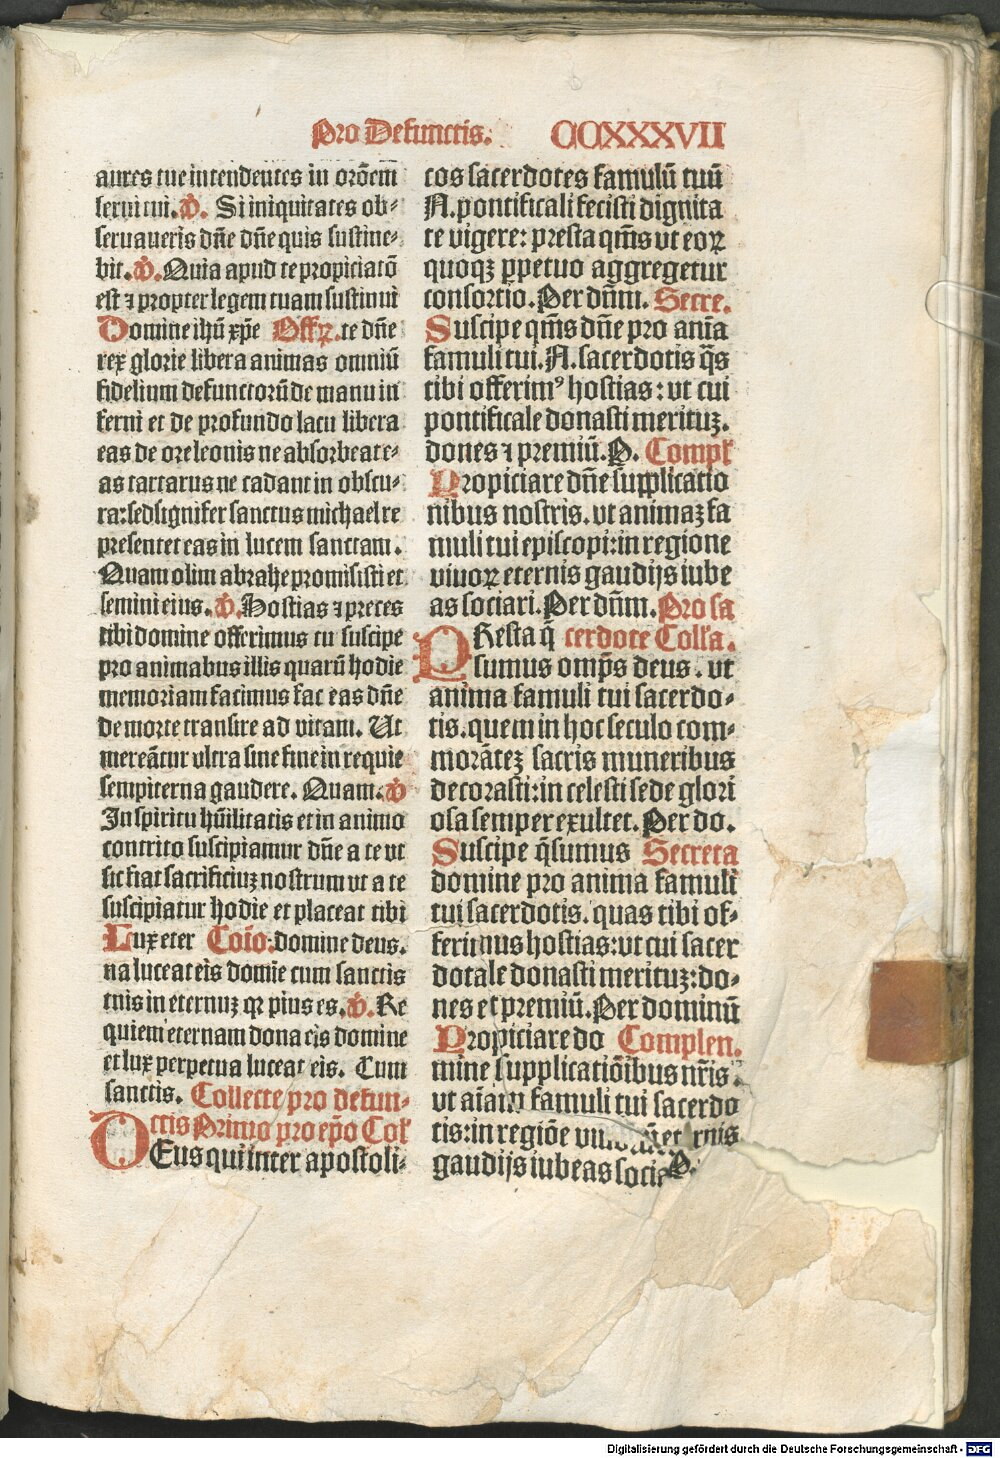 Pro Defunctis. CCXXXVII
aures tue intendentes in orōem
serui tui. ℣. Si iniquitates ob⸗
seruaueris dn̄e dn̄e quis sustine⸗
bit. ℣. Quia apud te propiciatō
est ⁊ propter legem tuam sustinui
Domine ihū xp̄e Offꝝ. te dn̄e
rex glorie libera animas omniū
fidelium defunctorū de manu in
ferni et de profundo lacu libera
eas de ore leonis ne absorbeat e⸗
as tartarus ne cadant in obscu⸗
ra: sed signifer sanctus michael re
presentet eas in lucem sanctam.
Quam olim abrahe promisisti et
semini eius. ℣. Hostias ⁊ preces
tibi domine offerimus tu suscipe
pro animabus illis quarū hodie
memoriam facimus fac eas dn̄e
de morte transire ad vitam. Ut
mereātur vltra sine fine in requie
sempiterna gaudere. Quam. ℣
In spiritu hūilitatis et in animo
contrito suscipiamur dn̄e a te vt
sic fiat sacrificiuꝫ nostrum vt a te
suscipiatur hodie et placeat tibi
Lux eter Coīo: domine deus.
na luceat eis domie cum sanctis
tuis in eternuꝫ qꝛ pius es. ℣. Re
quiem eternam dona eis domine
et lux perpetua luceat eis. Cum
sanctis. Collecte pro defun⸗
ctis Primo pro ep̄o Coł
DEus qui inter apostoli⸗
cos sacerdotes famulū tuū
N. pontificali fecisti dignita
te vigere: presta qm̄s vt eoꝝ
quoqꝫ ꝑpetuo aggregetur
consortio. Per dn̄m. Secre.
Suscipe qm̄s dn̄e pro anīa
famuli tui. N. sacerdotis q̄s
tibi offerimꝰ hostias: vt cui
pontificale donasti merituꝫ.
dones ⁊ premiū. P. Compł
Propiciare dn̄e supplicatio
nibus nostris. vt animaꝫ fa
muli tui episcopi: in regione
viuoꝝ eternis gaudijs iube
as sociari. Per dn̄m. Pro sa
PResta q̄ cerdote Coll'a.
sumus omp̄s deus. vt
anima famuli tui sacerdo⸗
tis. quem in hoc seculo com⸗
morāteꝫ sacris muneribus
decorasti: in celesti sede glori
osa semper exultet. Per do.
Suscipe q̄sumus Secreta
domine pro anima famuli
tui sacerdotis. quas tibi of⸗
ferimus hostias: vt cui sacer
dotale donasti merituꝫ: do⸗
nes et premiū. Per dominū
Propiciare do Complen.
mine supplicatiōibus nr̄is.
vt aīam famuli tui sacerdo
tis: in regiōe
gaudijs iubeas P.
Digitalisierung gefördert durch die Deutsche Forschungsgemeinschaft - DFG